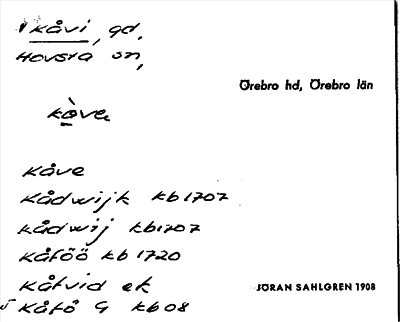 Kåvi, gd,
Hovsta sn,
Örebro hd, Örebro län
kàve
Kåve
Kådwijk kb 1707
Kådwij kb 1707
Kåföö kb 1720
Kåfvid ek
JÖRAN SAHLGREN 1908
Kåfö G kb 08